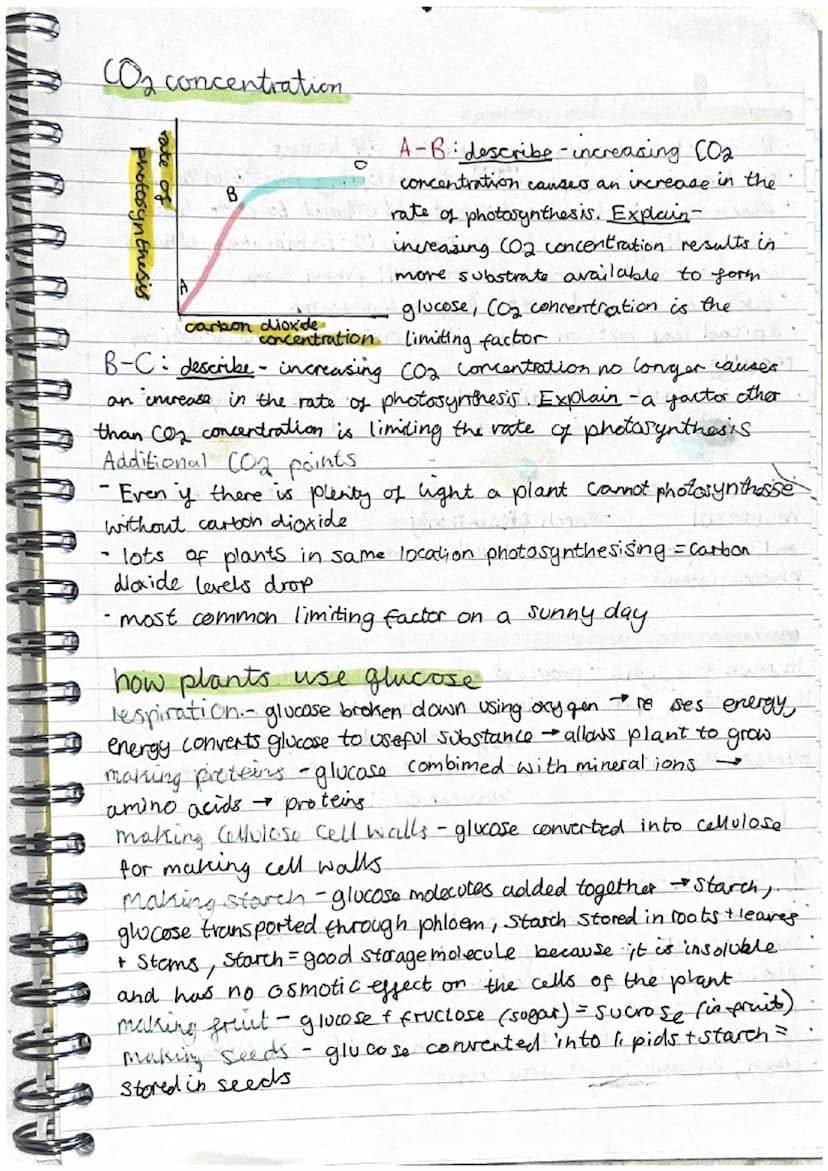 CO2 concentration
rate of
photosynthesis
A
B
carbon dioxide
concentration
A-B: describe - increasing CO2
concentration causes an increase in the
rate of photosynthesis. Explain -
increasing CO2 concentration results in
more substrate available to form
glucose, CO2 concentration is the
limiting factor
B-C: describe - increasing CO2 concentration no longer causes
an increase in the rate of photosynthesis Explain - a factor other
than CO2 concentration is limiting the rate of photosynthesis
Additional CO2 points
- Even if there is plenty of light a plant cannot photosynthesise
without carbon dioxide
- lots of plants in same location photosynthesising = carbon
dioxide levels drop
- most common limiting factor on a sunny day
how plants use glucose
respiration - glucose broken down using oxygen → energy,
energy converts glucose to useful substance → allows plant to grow
making proteins - glucose combimed with mineral ions →
amino acids → proteins
making cellulose cell walls - glucose converted into cellulose
for making cell walls
making starch - glucose molecules added together → starch,
glucose transported through phloem, starch stored in roots + leaves
+ stems, starch = good storage molecule because it is insoluble
and has no osmotic effect on the cells of the plant
making fruit - glucose + fructose (sugar) = sucrose (in fruit)
making seeds - glucose converted into lipids + starch =
stored in seeds